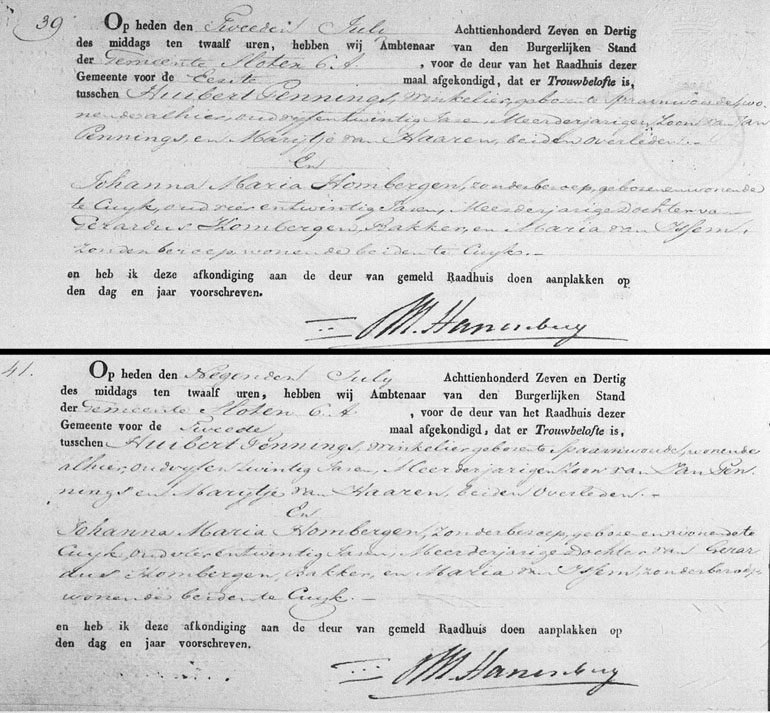 39 Op heden den Tweeden July Achttienhonderd Zeven en Dertig
des middags ten twaalf uren, hebben wij Ambtenaar van den Burgerlijken Stand
der Gemeente Sloten C.A. , voor de deur van het Raadhuis dezer
Gemeente voor de Eerste maal afgekondigd, dat er Trouwbelofte is,
tusschen Huibert Pennings, winkelier, geboren te Spaarnwoude, wo-
nende alhier, oud vyf en twintig Jaren, Meerderjarige Zoon van Jan
Pennings, en Marijtje van Haaren, beiden overleden.-
En
Johanna Maria Hombergen, zonder beroep, geboren en wonende
te Cuyk, oud vier en twintig Jaren, Meerderjarige Dochter van
Gerardus Hombergen, Bakker, en Maria van Issem,
zonder beroep wonende beiden te Cuyk.-
en heb ik deze afkondiging aan de deur van gemeld Raadhuis doen aanplakken op
den dag en jaar voorschreven.
Hanenburg
41. Op heden den Negenden July Achttienhonderd Zeven en Dertig
des middags ten twaalf uren, hebben wij Ambtenaar van den Burgerlijken Stand
der Gemeente Sloten C.A. , voor de deur van het Raadhuis dezer
Gemeente voor de Tweede maal afgekondigd, dat er Trouwbelofte is,
tusschen Huibert Pennings, winkelier, geboren te Spaarnwoude, wonende
alhier, oud vyf en twintig Jaren, Meerderjarige Zoon van Jan Pen-
nings en Marijtje van Haaren, beiden overleden.-
En
Johanna Maria Hombergen, zonder beroep, geboren en wonende te
Cuyk, oud vier en twintig Jaren, Meerderjarige Dochter van Gerar-
dus Hombergen, Bakker, en Maria van Issem, zonder beroep
wonende beiden te Cuyk.-
en heb ik deze afkondiging aan de deur van gemeld Raadhuis doen aanplakken op
den dag en jaar voorschreven.
Hanenburg